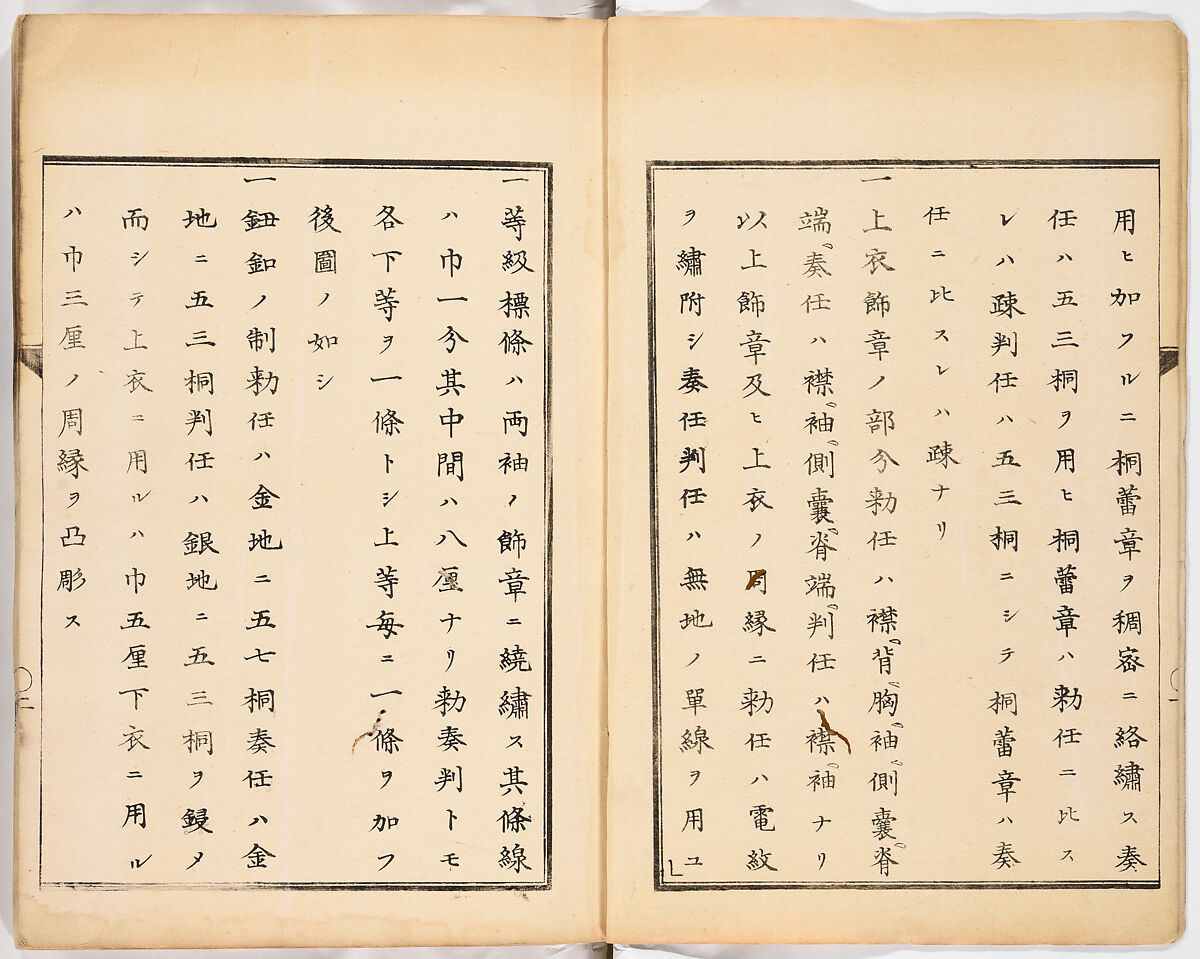 用ヒ加フルニ桐蕾章ヲ稠宻ニ絡繡ス奏
任ハ五三桐ヲ用ヒ桐蕾章ハ勅任ニ比ス
レハ疎判任ハ五三桐ニシテ桐蕾章ハ奏
任ニ比スレハ疎ナリ
一上衣飾章ノ部分勅任ハ襟、背、胸、袖、側囊、脊
端、奏任ハ襟、袖、側囊、脊端、判任ハ襟、袖ナリ
以上飾章及ヒ上衣ノ周縁ニ勅任ハ電紋
ヲ繡附シ奏任判任ハ無地ノ單線ヲ用ユ
一等級標條ハ両袖ノ飾章ニ繞繡ス其條線
ハ巾一分其中間ハ八厘ナリ勅奏判トモ
各下等ヲ一條トシ上等毎ニ一條ヲ加フ
後圖ノ如シ
一鈕釦ノ制勅任ハ金地ニ五七桐奏任ハ金
地ニ五三桐判任ハ銀地ニ五三桐ヲ鋟メ
而シテ上衣ニ用ルハ巾五厘下衣ニ用ル
ハ巾三厘ノ周縁ヲ凸彫ス
二